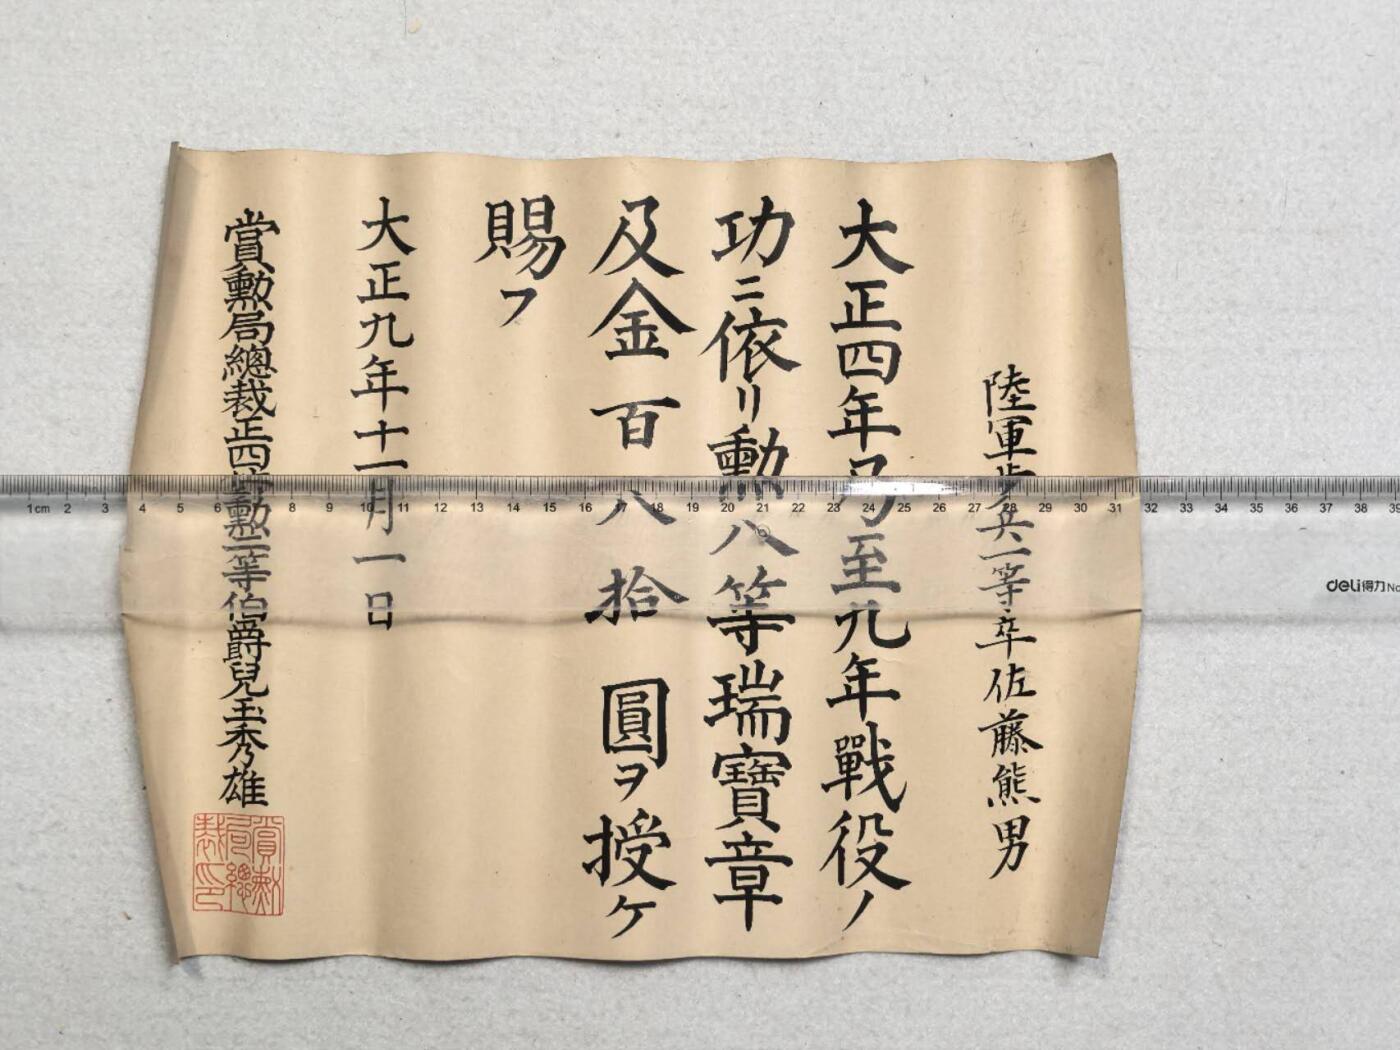 陸軍歩兵一等卒佐藤熊男
大正四年乃至九年戰役ノ
功ニ依リ勲八等瑞寶章
及金百八拾圓ヲ授ケ
賜フ
大正九年十一月一日
賞勲局總裁正四位勲二等伯爵兒玉秀雄
賞勲局總裁印
1cm 2 3 4 5 6 7 8 9 10 11 12 13 14 15 16 17 18 19 20 21 22 23 24 25 26 27 28 29 30 31 32 33 34 35 36 37 38 39
deli得力 No